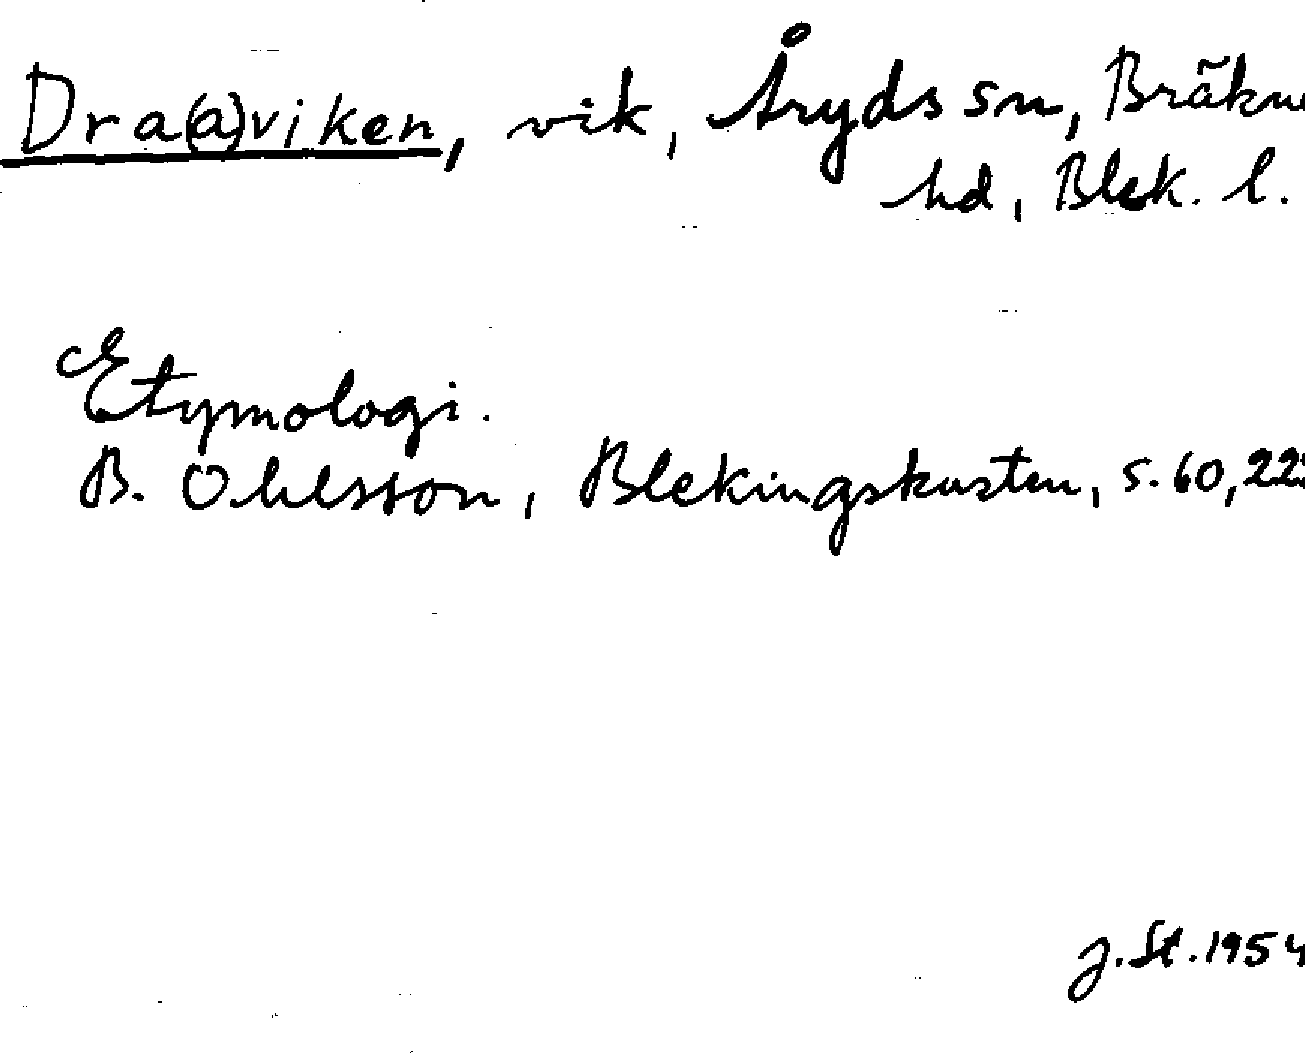 Dra(a)viken, vik, Åryds sn, Bräkne
hd, Blek. l.
Etymologi.
B. Ohlsson, Blekingskusten, s. 60, 22
J. St. 1954